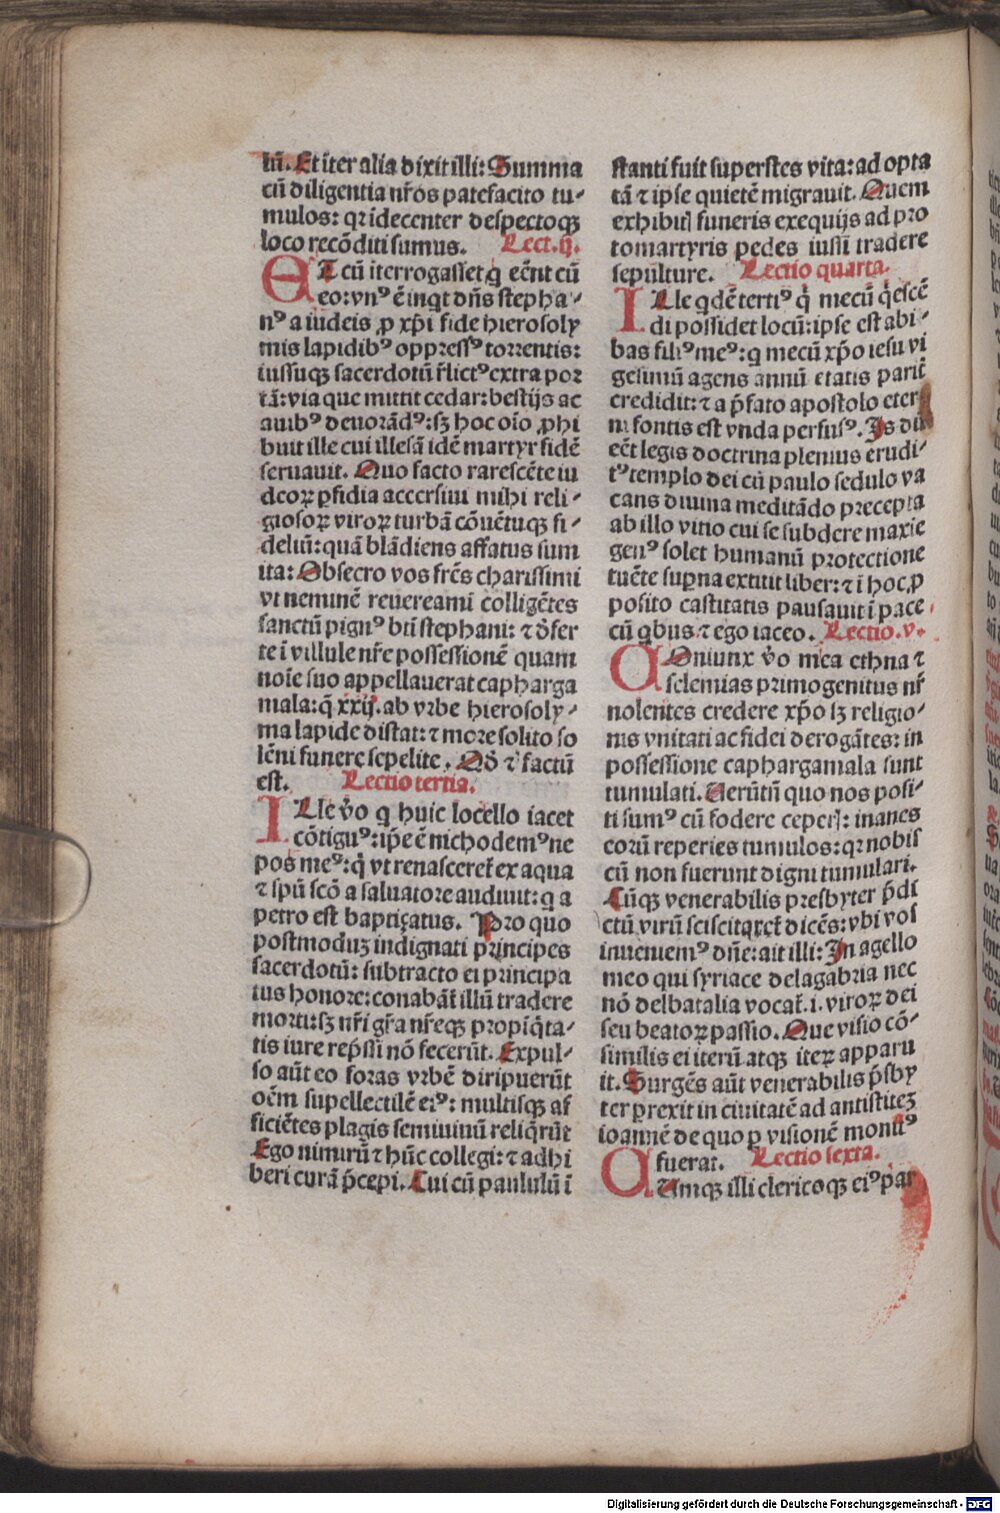 liū. Et īter alia dixit illi: Summa
cū diligentia nr̄os patefacito tu⸗
mulos: qꝛ īdecenter despectoqꝫ
loco recōditi sumus. Lect. ij.
ET cū īterrogasset q̄ eēnt cū
eo: vnꝰ ē inqt dn̄s stepha⸗
nꝰ a iudeis ꝓ xp̄i fide hierosoly
mis lapidibꝰ oppressꝰ torrentis:
iussuqꝫ sacerdotū r̄lictꝰ extra por
tā: via que mittit cedar: bestijs ac
auibꝰ deuorādꝰ: sꝫ hoc oīo ꝓhi
buit ille cui illesā idē martyr fidē
seruauit. Quo facto rarescēte iu
deoꝝ ꝑfidia accersiui mihi reli⸗
giosoꝝ viroꝝ turbā cōuētuqꝫ fi⸗
deliū: quā blādiens affatus sum
ita: Obsecro vos fr̄es charissimi
vt neminē reuereami colligētes
sanctū pignꝰ bt̄i stephani: ⁊ d̄fer
te ī villule nr̄e possessionē quam
noīe suo appellauerat capharga
mala: q̄ xxij. ab vrbe hierosoly⸗
ma lapide distat: ⁊ more solito so
lēni funere sepelite. Qd̄ ⁊ factū
est. Lectio tertia.
ILle v̄o q huic locello iacet
cōtiguꝰ: ip̄e ē nichodemꝰ ne
pos meꝰ: q̄ vt renasceret̄ ex aqua
⁊ sp̄u scō a saluatore audiuit: q a
petro est baptiꝫatus. Pro quo
postmoduꝫ indignati principes
sacerdotū: subtracto ei principa
tus honore: conabāt̄ illū tradere
mortisꝫ nr̄i gr̄a nr̄eqꝫ propiq̄ta⸗
tis iure rep̄ssi nō fecerūt. Expul⸗
so aūt eo foras vrbē diripuerūt
oēm supellectilē eiꝰ: multisqꝫ af
ficiētes plagis semiuiuū reliq̄rūt
Ego nimirū ⁊ hūc collegi: ⁊ adhi
beri curā p̄cepi. Cui cū paululū ī
stanti fuit superstes vita: ad opta
tā ⁊ ipse quietē migrauit. Quem
exhibitꝭ funeris exequijs ad pro
tomartyris pedes iussi tradere
sepulture. Lectio quarta.
ILle qdē tertiꝰ q̄ mecū q̄escē
di possidet locū: ipse est abi⸗
bas filiꝰ meꝰ: q mecū xp̄o iesu vi
gesimū agens annū etatis parit̄
credidit: ⁊ a p̄fato apostolo eter
ni fontis est vnda perfusꝰ. Is dū
eēt legis doctrina plenius erudi⸗
tꝰ templo dei cū paulo sedulo va
cans diuina meditādo precepta
ab illo vitio cui se subdere maxie
genꝰ solet humanū protectione
tuēte suꝑna extitit liber: ⁊ ī hoc ꝓ
posito castitatis pausauit ī pace
cū qbus ⁊ ego iaceo. Lectio. v.
COniunx v̄o mea ethna ⁊
selemias primogenitus nr̄
nolentes credere xp̄o sꝫ religio⸗
nis vnitati ac fidei derogātes: in
possessione caphargamala sunt
tumulati. Uerūtn̄ quo nos posi⸗
ti sumꝰ cū fodere ceperꝭ: inanes
eorū reperies tumulos: qꝛ nobis
cū non fuerunt digni tumulari.
Cūqꝫ venerabilis presbyter p̄di
ctū virū sciscitaret̄ dicēs: vbi vos
inueniemꝰ dn̄e: ait illi: In agello
meo qui syriace delagabria nec
nō delbatalia vocat̄. i. viroꝝ dei
seu beatoꝝ passio. Que visio cō⸗
similis ei iterū atqꝫ iteꝝ apparu
it. Surgēs aūt venerabilis p̄sby
ter ꝑrexit in ciuitatē ad antistiteꝫ
ioannē de quo ꝑ visionē monitꝰ
fuerat. Lectio sexta.
CUmqꝫ illi clericoqꝫ eiꝰ par
Digitalisierung gefördert durch die Deutsche Forschungsgemeinschaft - DFG